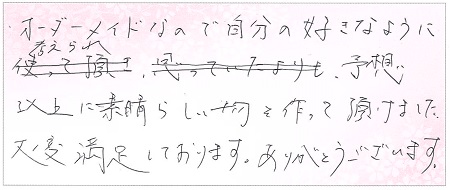 ・オーダーメイドなので自分の好きなように
考えられ
使って頂き、思っていたよりも、予想
以上に素晴らしい物を作って頂けました。
大変満足しております。ありがとうございます。